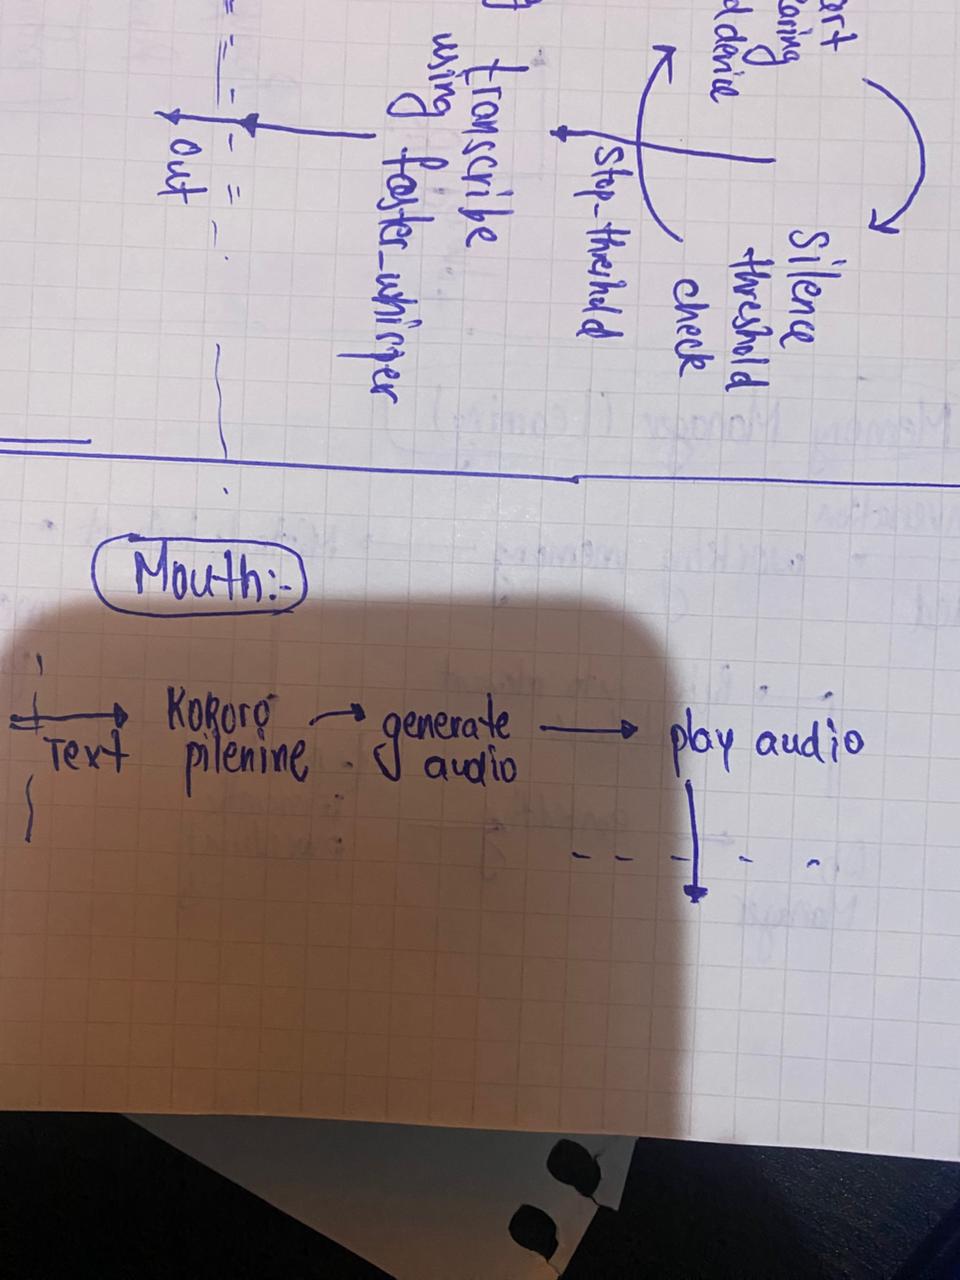 Silence
threshold
check
Stop-threshold
transcribe
using
faster-whisper
out
Mouth:-
Text
Kokoro
pilenine
generate
audio
play audio